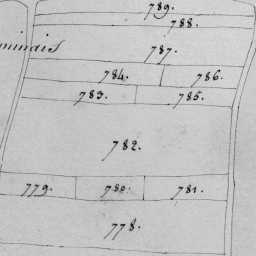 789.
788.
787.
784. 786.
783. 785.
782.
779. 780. 781.
778.